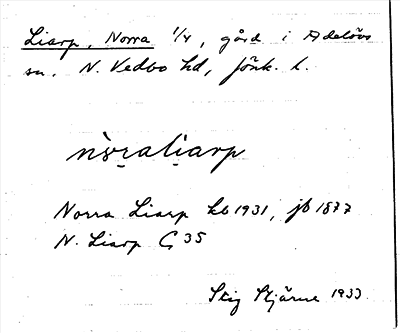 Liarp, Norra 1/4, gård i Adelövs
sn. N. Vedbo hd, Jönk. l.
nòṛalíarp
Norra Liarp kb 1931, jb 1877
N. Liarp G 35
Stig Stjärne 1933